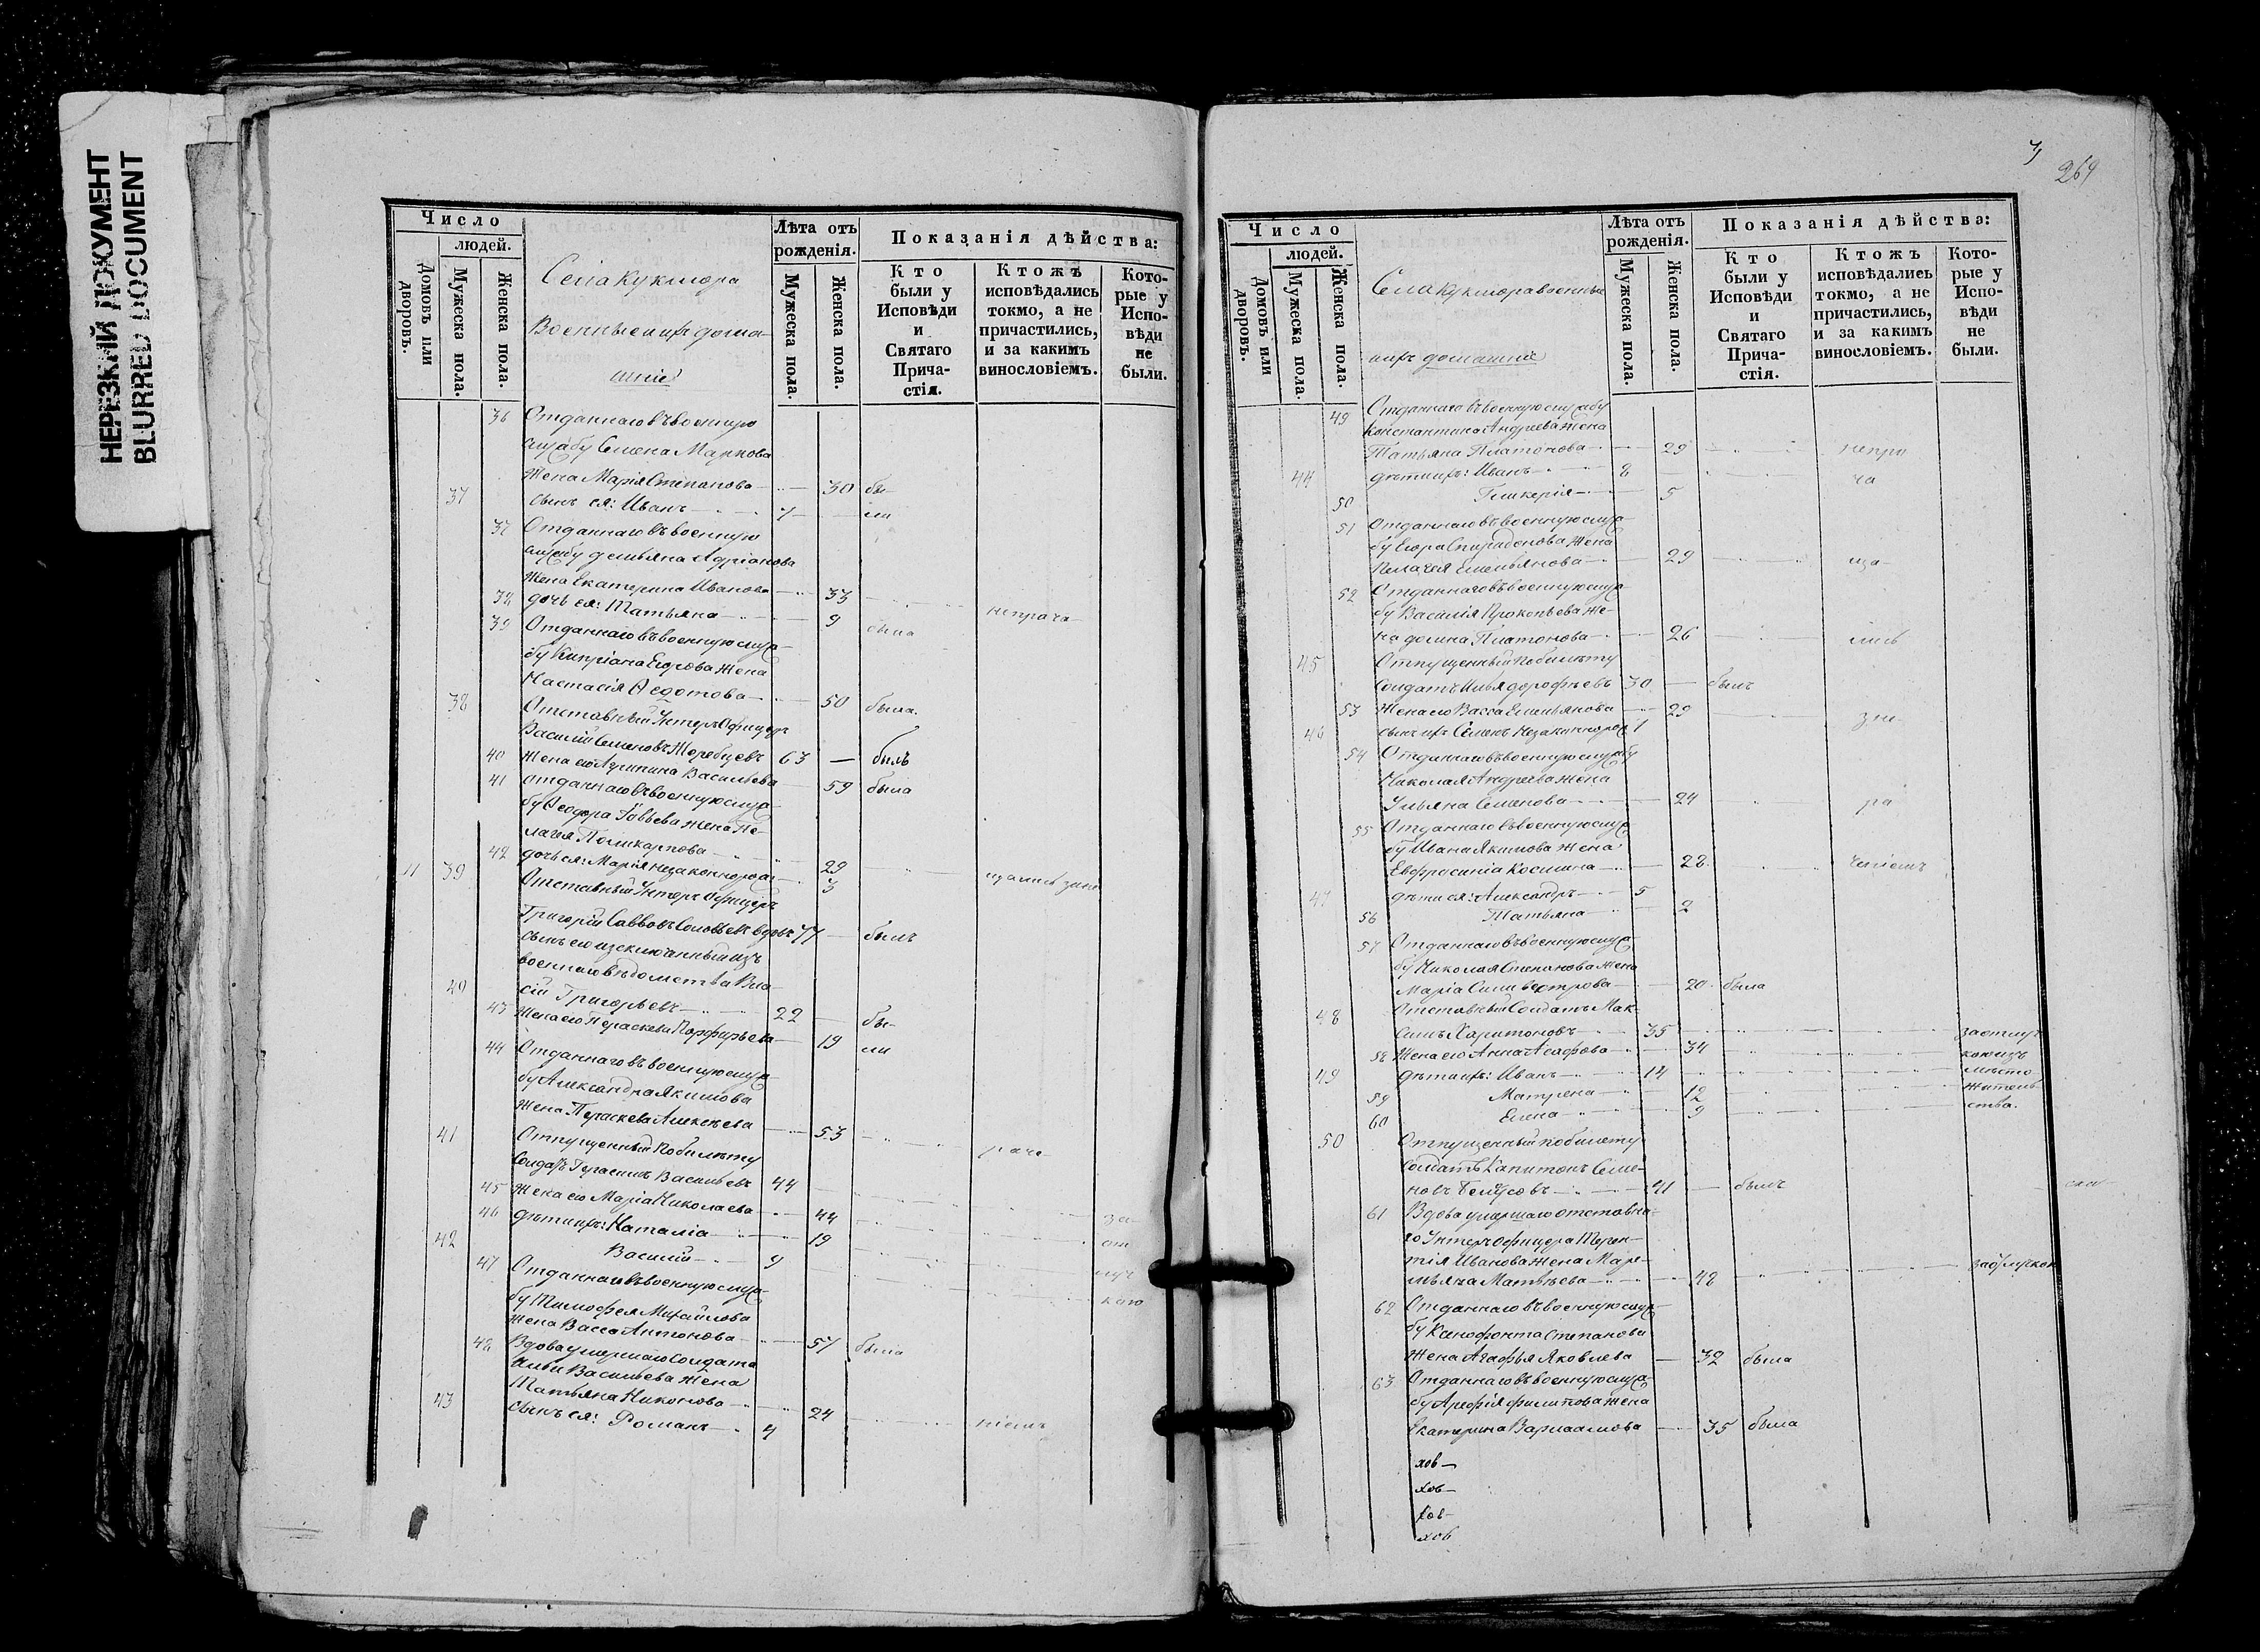 НЕРЕЗКИЙ ДОКУМЕНТ
BLURRED DOCUMENT
Число
людей.
Домовъ или дворовъ.
Мужеска пола.
Женска пола.
Села Кукмора
Военные и ихъ дома-
шніе
Лѣта отъ рожденія.
Мужеска пола.
Женска пола.
Показанія дѣйства:
Кто были у Исповѣди и Святаго Прича-стія.
Ктожъ исповѣдались токмо, а не причастились, и за какимъ винословіемъ.
Кото-рые у Испо-вѣди не были.
36 Отданнаго въ военную
службу Семена Маркова
жена Марія Степанова 30 бы-
37 сынъ ея: Иванъ 7 ли
37 Отданнаго въ военную
службу Демьяна Адріанова
жена Екатерина Иванова 33
38 дочь ея: Татьяна 9
39 Отданнаго въ военную служ-
бу Кипріана Егорова жена
Настасія Ѳедотова 50 была.
38 Отставный Унтеръ Офицеръ
Василій Семеновъ Жеребцевъ 63 — былъ
40 жена его Агрипина Васильева 59 была
41 Отданнаго въ военную служ-
бу Ѳеодора жена Пе-
лагея Поликарпова 29
42 дочь ея: Марія незаконнорож 3
11 39 Отставный Унтеръ Офицеръ
Григорій Саввовъ вдовъ 77 былъ
сынъ его изсключенный изъ
военнаго вѣдомства Вла-
40 сій Григорьевъ 22 бы-
43 жена его Пераскева Порфирьева 19 ли
44 Отданнаго въ военную служ-
бу Александра Якимова
жена Пераскева Алексѣева 53
41 Отпущенный по билѣту
Солдатъ Герасимъ Васильевъ 44
45 жена его Марія Николаева 44 за-
46 дѣти ихъ: Наталія 19 от
42 Василій 9 луч
47 Отданнаго въ военную служ- кою
бу Тимофея Михайлова
жена Васса Антонова 57 была
48 Вдова умершаго Солдата
Ильи Васильева жена
Татьяна Никонова 24
43 сынъ ея: Романъ 4 ніемъ
269
Число
людей.
Домовъ или дворовъ.
Мужеска пола.
Женска пола.
Села Кукмора военные
ихъ домашніе
Лѣта отъ рожденія.
Мужеска пола.
Женска пола.
Показанія дѣйства:
Кто были у Исповѣди и Святаго Прича-стія.
Ктожъ исповѣдались токмо, а не причастились, и за какимъ винословіемъ.
Кото-рые у Испо-вѣди не были.
49 Отданнаго въ военную службу
Константина Андреева жена
Татьяна Платонова 29 непри
44 дѣти ихъ: Иванъ 8 ча
50 Гликерія 5
51 Отданнаго въ военную служ-
бу Егора Спиридонова жена
Пелагея Емельянова 29 ща-
52 Отданнаго въ военную служ-
бу Василія Прокопьева же-
на Домна Платонова 26 лись
45 Отпущенный по билѣту
Солдатъ Илья Дорофѣевъ 30 — былъ
53 жена его Васса Емельянова 29 зне
46 сынъ ихъ Семенъ незаконнорож 1
54 Отданнаго въ военную службу
Николая Андреева жена
Ульяна Семенова 24 ра
55 Отданнаго въ военную служ-
бу Ивана Якимова жена
Евфросинія Косьмина 28 ченіемъ
47 дѣти ея: Александръ 5
56 Татьяна 2
57 Отданнаго въ военную служ-
бу Николая Степанова жена
Марія Сильвестрова 20 была
48 Отставный Солдатъ Мак-
симъ Харитоновъ 35 заотлуч
58 жена его Анна Агафова 34 кою изъ
49 дѣти ихъ: Иванъ 14 мѣсто
59 Матрена 12 житель
60 Елена 9 ства.
50 Отпущенный по билету
Солдатъ Капитонъ Семе-
новъ Белоусовъ 41 — былъ
61 Вдова умершаго отставна-
го Унтеръ Офицера Терен-
тія Иванова жена Маре-
мьяна Матвѣева 48 заотлучкою
62 Отданнаго въ военную служ-
бу Ксенофонта Степанова
жена Агафья Яковлева 32 была
63 Отданнаго въ военную служ-
бу Арефія Филипова жена
Екатерина Варлаамова 35 была